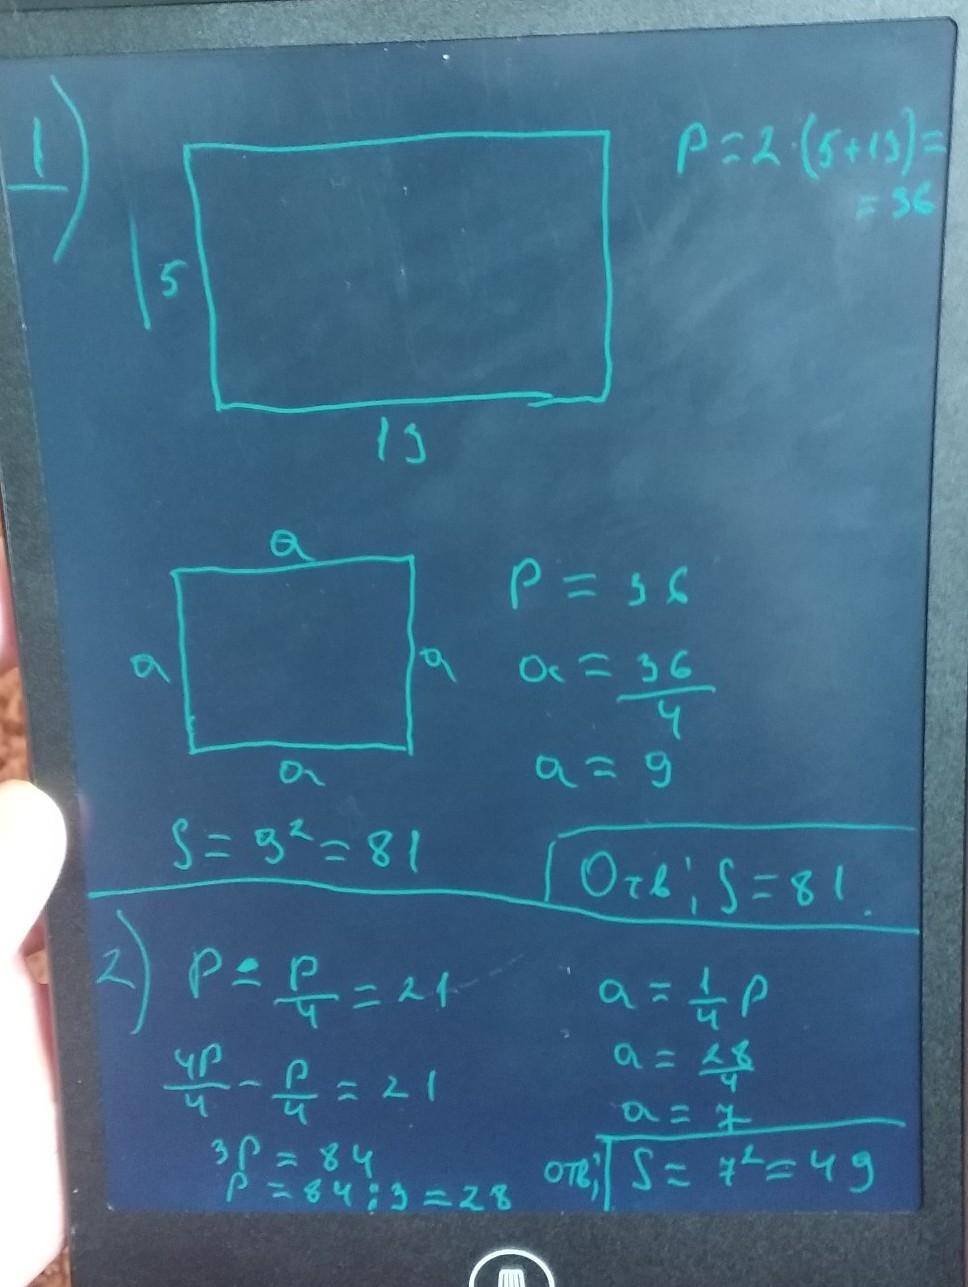 1)
P = 2·(5+13) =
= 36
5
13
a
a
a
a
P = 36
a = 36/4
a = 9
S = 9² = 81
Отв; S = 81.
2)
P - P/4 = 21
4P/4 - P/4 = 21
3P = 84
P = 84 : 3 = 28
a = 1/4 P
a = 28/4
a = 7
отв; S = 7² = 49